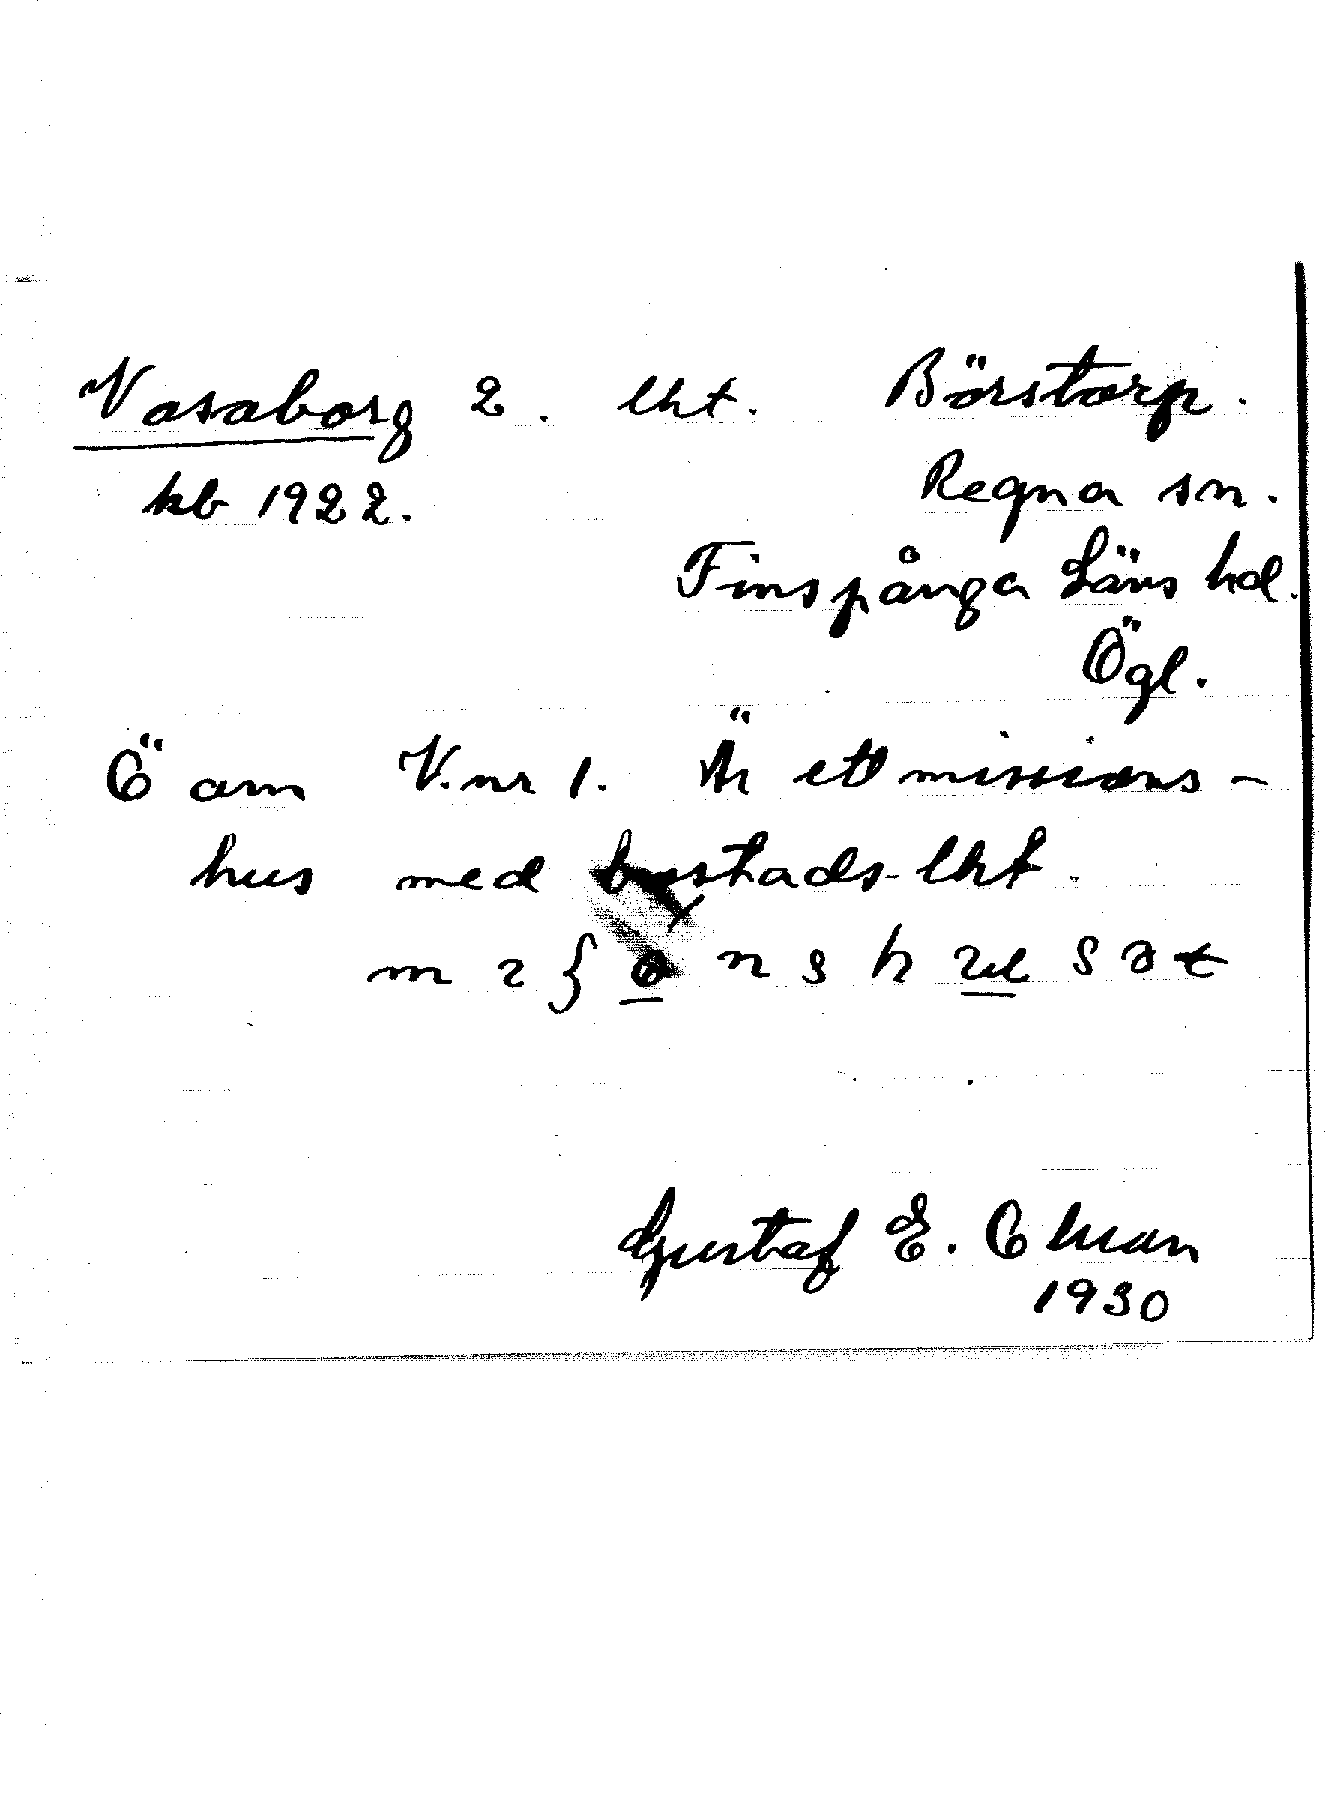 Vasaborg 2. lht. Börstorp.
kb 1922. Regna sn.
Finspånga Läns hd.
Ögl.
Ö om V. nr 1. Är ett missions-
hus med bostads-lht.
Gustaf E. Ohman
1930